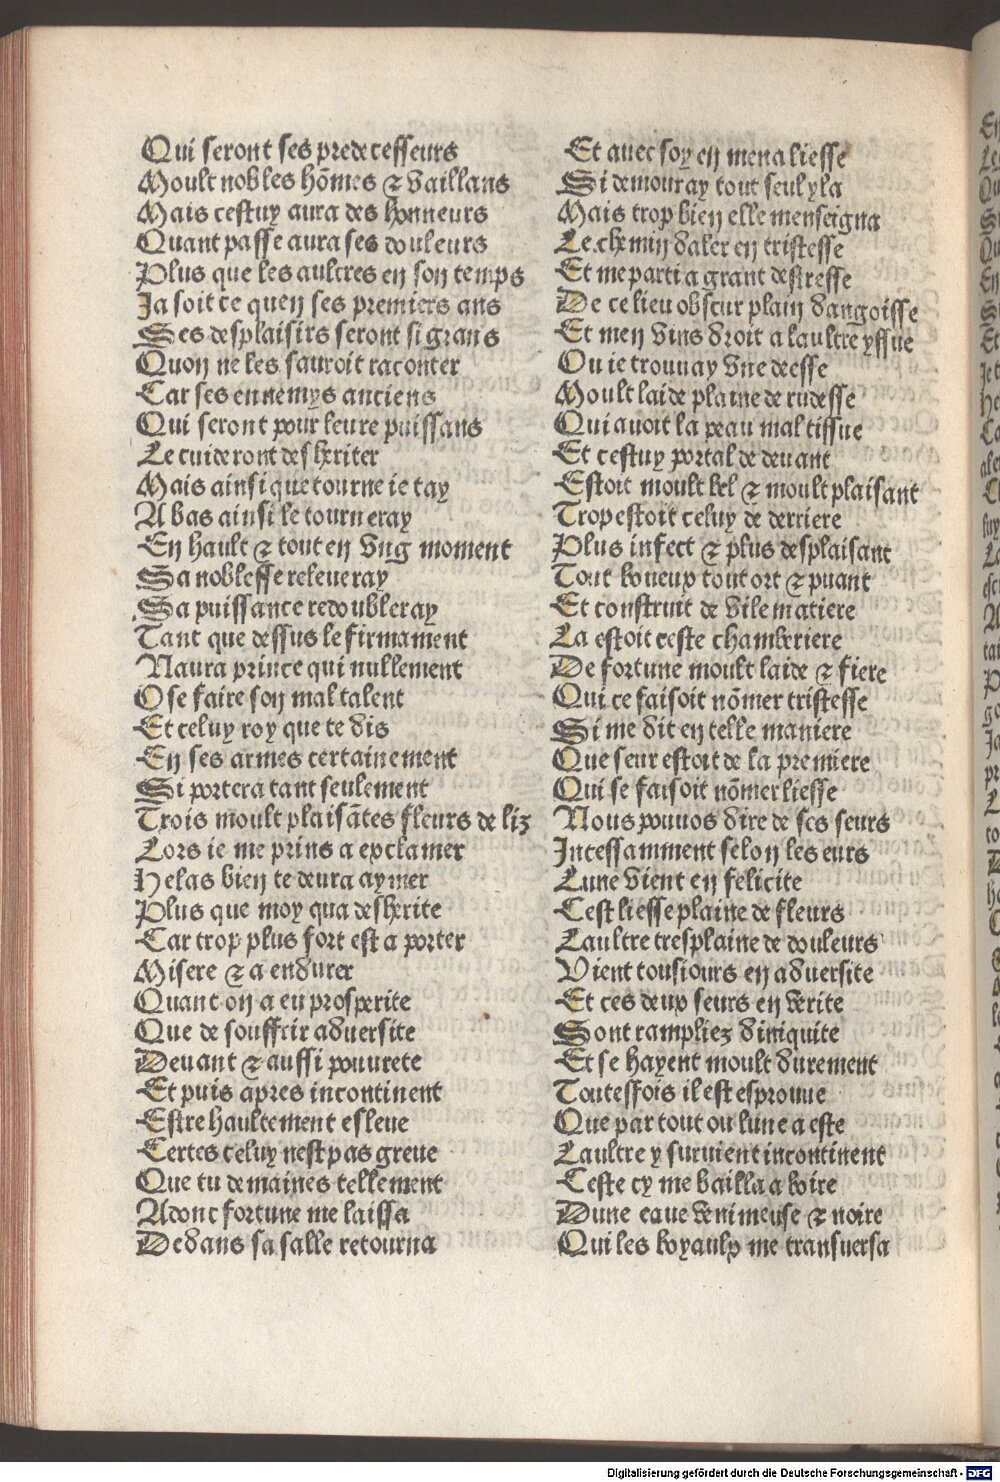 Qui seront ses predecesseurs
Moult nobles hõmes & vaillans
Mais cestuy aura des honneurs
Quant passe aura ses douleurs
Plus que les aultres en son temps
Ja soit ce quen ses premiers ans
Ses desplaisirs seront si grans
Quon ne les sauroit raconter
Car ses ennemys anciens
Qui seront pour leure puissans
Le cuideront desheriter
Mais ainsi que tourne ie tay
A bas ainsi le tourneray
En hault & tout en vng moment
Sa noblesse releueray
Sa puissance redoubleray
Tant que dessus le firmament
Naura prince qui nullement
Ose faire son mal talent
Et celuy roy que te dis
En ses armes certainement
Si portera tant seulement
Trois moult plaisãtes fleurs de liz
Lors ie me prins a exclamer
Helas bien te deura aymer
Plus que moy qua desherite
Car trop plus fort est a porter
Misere & a endurer
Quant on a eu prosperite
Que de souffrir aduersite
Deuant & aussi pouurete
Et puis apres incontinent
Estre haultement esleue
Certes celuy nest pas greue
Que tu demaines tellement
Adonc fortune me laissa
Dedans sa salle retourna
Et auec soy en mena liesse
Si demouray tout seul yla
Mais trop bien elle menseigna
Le chemin daler en tristesse
Et me parti a grant destresse
De ce lieu obscur plain dangoisse
Et men vins droit a laultre yssue
Ou ie trouuay vne deesse
Moult laide plaine de rudesse
Qui auoit la peau mal tissue
Et cestuy portal de deuant
Estoit moult bel & moult plaisant
Trop estoit celuy de derriere
Plus infect & plus desplaisant
Tout boueux tout ort & puant
Et construit de vile matiere
La estoit ceste chamberiere
De fortune moult laide & fiere
Qui ce faisoit nõmer tristesse
Si me dit en telle maniere
Que seur estoit de la premiere
Qui se faisoit nõmer liesse
Nous pouuos dire de ses seurs
Incessamment selon les eurs
Lune vient en felicite
Cest liesse plaine de fleurs
Laultre tresplaine de douleurs
Vient tousiours en aduersite
Et ces deux seurs en verite
Sont rampliez diniquite
Et se hayent moult durement
Toutesfois il est esprouue
Que par tout ou lune a este
Laultre y suruient incontinent
Ceste cy me bailla a boire
Dune eaue venimeuse & noire
Qui les boyaulx me transuersa
Digitalisierung gefördert durch die Deutsche Forschungsgemeinschaft - DFG